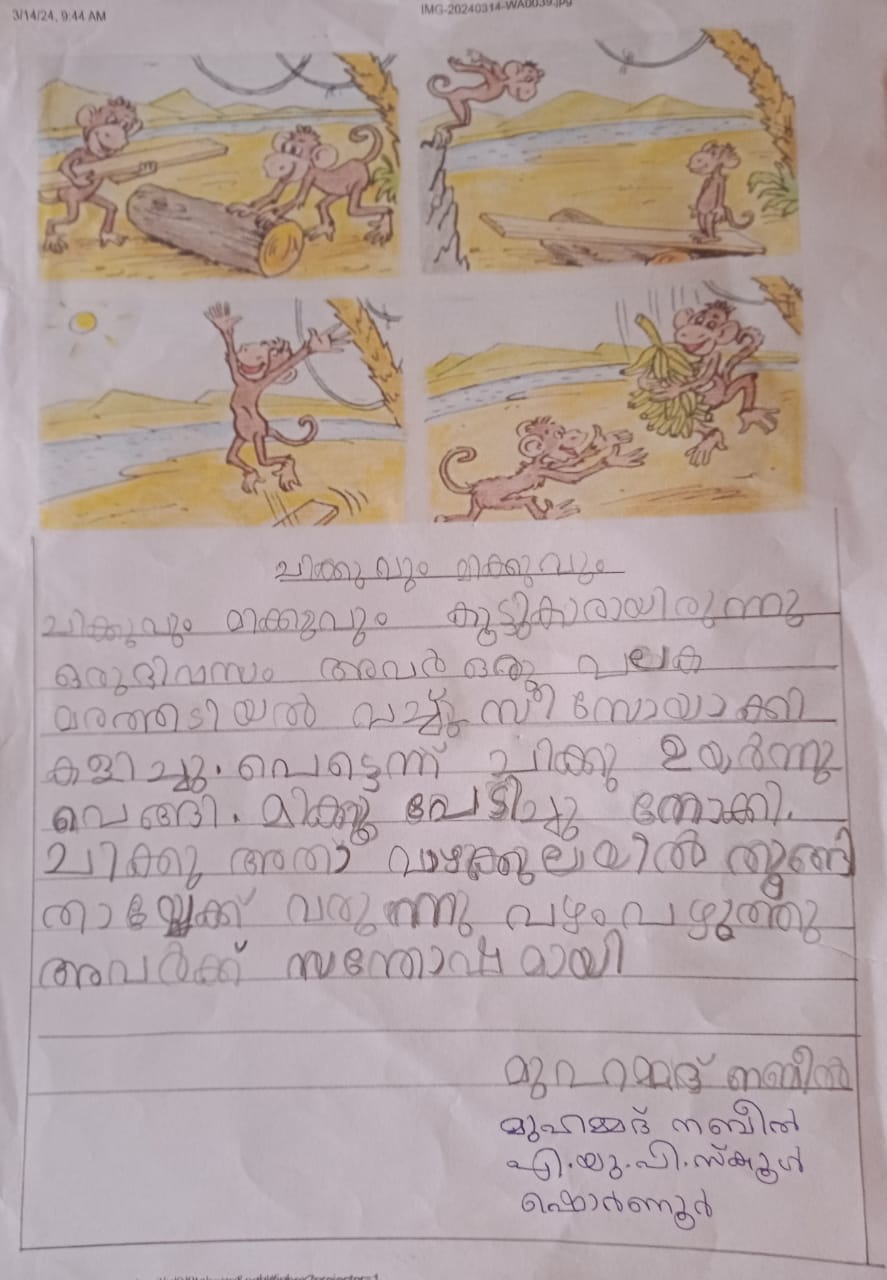 3/14/24, 9:44 AM
IMG-20240314-WA0039.jpg
ചിക്കുവും മിക്കുവും
ചിക്കുവും മിക്കുവും കൂട്ടുകാരായിരുന്നു
ഒരുദിവസം അവർ ഒരു പലക
മരത്തടിയൽ വച്ച് സീസോയാക്കി
കളിച്ചു. പെട്ടെന്ന് ചിക്കു ഉയർന്നു
പെങ്ങി. മിക്കു പേടിച്ചു നോക്കി.
ചിക്കു അതാ വാഴക്കുലയിൽ തൂങ്ങി
താഴേക്ക് വരുന്നു പഴംപഴുത്തു
അവർക്ക് സന്തോഷമായി
മുഹമ്മദ് നബീൽ
മുഹമ്മദ് നബീൽ
എ.യു.പി.സ്കൂൾ
ഷൊർണൂർ